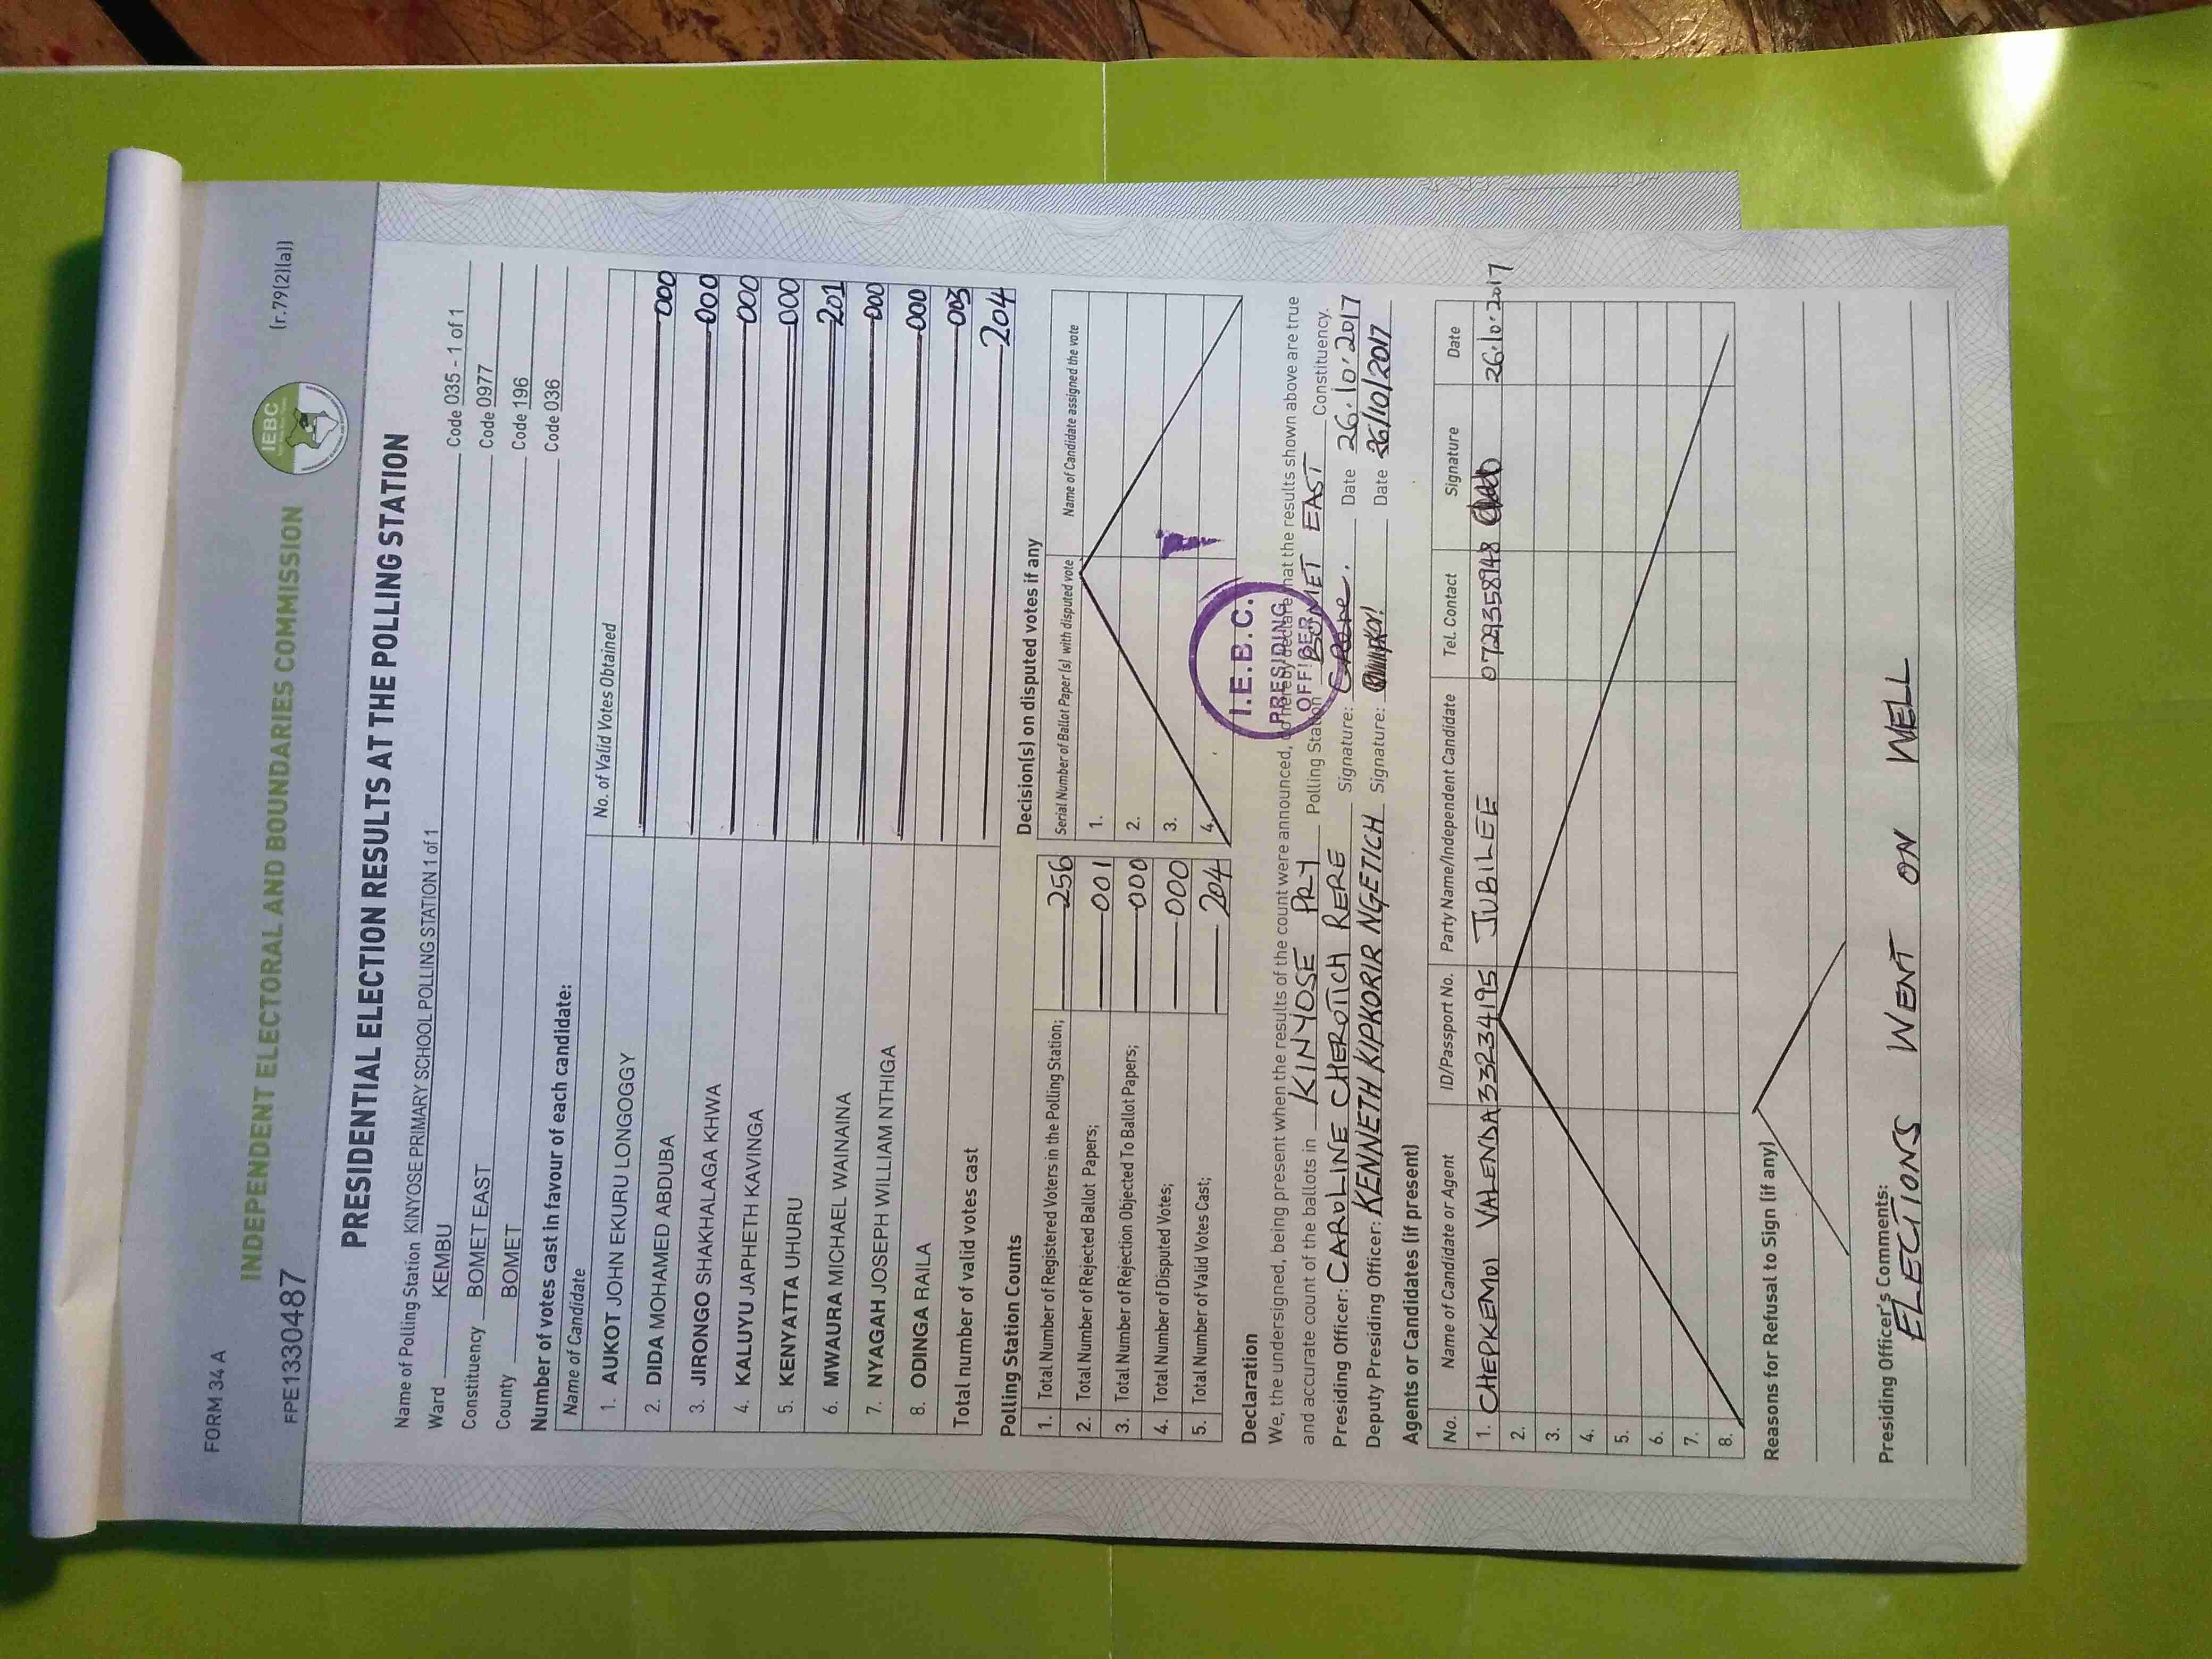 FORM 34 A
(r.79(2)(a))
FPE1330487
INDEPENDENT ELECTORAL AND BOUNDARIES COMMISSION
IEBC
PRESIDENTIAL ELECTION RESULTS AT THE POLLING STATION
Name of Polling Station KINYOSE PRIMARY SCHOOL POLLING STATION 1 of 1 Code 035 - 1 of 1
Ward KEMBU Code 0977
Constituency BOMET EAST Code 196
County BOMET Code 036
Number of votes cast in favour of each candidate:
Name of Candidate No. of Valid Votes Obtained
1. AUKOT JOHN EKURU LONGOGGY 000
2. DIDA MOHAMED ABDUBA 000
3. JIRONGO SHAKHALAGA KHWA 000
4. KALUYU JAPHETH KAVINGA 000
5. KENYATTA UHURU 201
6. MWAURA MICHAEL WAINAINA 000
7. NYAGAH JOSEPH WILLIAM NTHIGA 000
8. ODINGA RAILA 003
Total number of valid votes cast 204
Polling Station Counts
1. Total Number of Registered Voters in the Polling Station; 256
2. Total Number of Rejected Ballot Papers; 001
3. Total Number of Rejection Objected To Ballot Papers; 000
4. Total Number of Disputed Votes; 000
5. Total Number of Valid Votes Cast; 204
Decision(s) on disputed votes if any
Serial Number of Ballot Paper (s) with disputed vote Name of Candidate assigned the vote
1.
2.
3.
4.
I.E.B.C.
PRESIDING
OFFICER
Declaration
We, the undersigned, being present when the results of the count were announced, do hereby declare that the results shown above are true
and accurate count of the ballots in KINYOSE PRY Polling Station BOMET EAST Constituency.
Presiding Officer: CAROLINE CHEROTICH RERE Signature: Date 26.10.2017
Deputy Presiding Officer: KENNETH KIPKORIR NGETICH Signature: Date 26/10/2017
Agents or Candidates (if present)
No. Name of Candidate or Agent ID/Passport No. Party Name/Independent Candidate Tel. Contact Signature Date
1. CHEPKEMOI VALENDA 33234195 JUBILEE 0729358748 26.10.2017
2.
3.
4.
5.
6.
7.
8.
Reasons for Refusal to Sign (if any)
Presiding Officer's Comments:
ELECTIONS WENT ON WELL